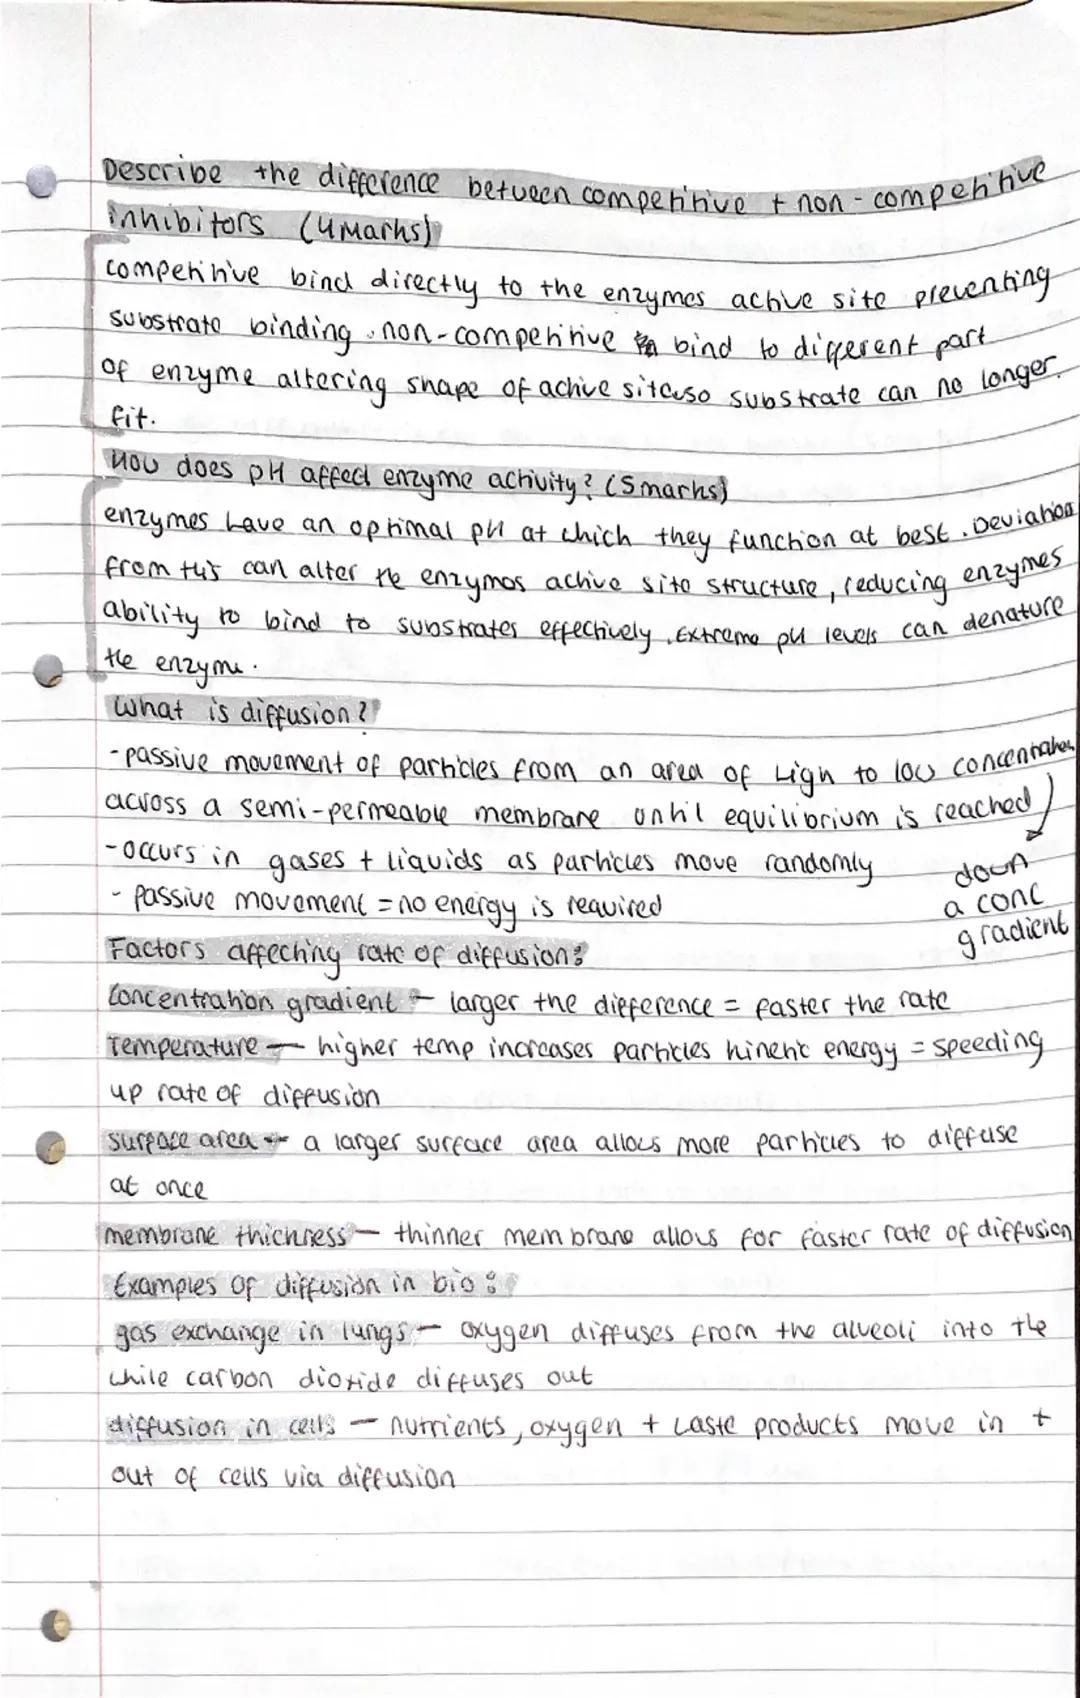 Describe the difference between competitive + non-competitive
inhibitors (4 marks)
competitive bind directly to the enzymes active site preventing
substrate binding. non-competitive bind to different part
of enzyme altering shape of active site so substrate can no longer
fit.
How does pH affect enzyme activity? (5 marks)
enzymes have an optimal pH at which they function at best. Deviation
from this can alter the enzymes active site structure, reducing enzymes
ability to bind to substrates effectively. Extreme pH levels can denature
the enzyme.
What is diffusion?
- passive movement of particles from an area of high to low concentration
across a semi-permeable membrane until equilibrium is reached
- occurs in gases + liquids as particles move randomly
down
- passive movement = no energy is required
a conc
gradient
Factors affecting rate of diffusion:
Concentration gradient - larger the difference = faster the rate
Temperature - higher temp increases particles kinetic energy = speeding
up rate of diffusion
surface area - a larger surface area allows more particles to diffuse
at once
membrane thickness - thinner membrane allows for faster rate of diffusion
Examples of diffusion in bio:
gas exchange in lungs - oxygen diffuses from the alveoli into the
while carbon dioxide diffuses out
diffusion in cells - nutrients, oxygen + waste products move in +
out of cells via diffusion